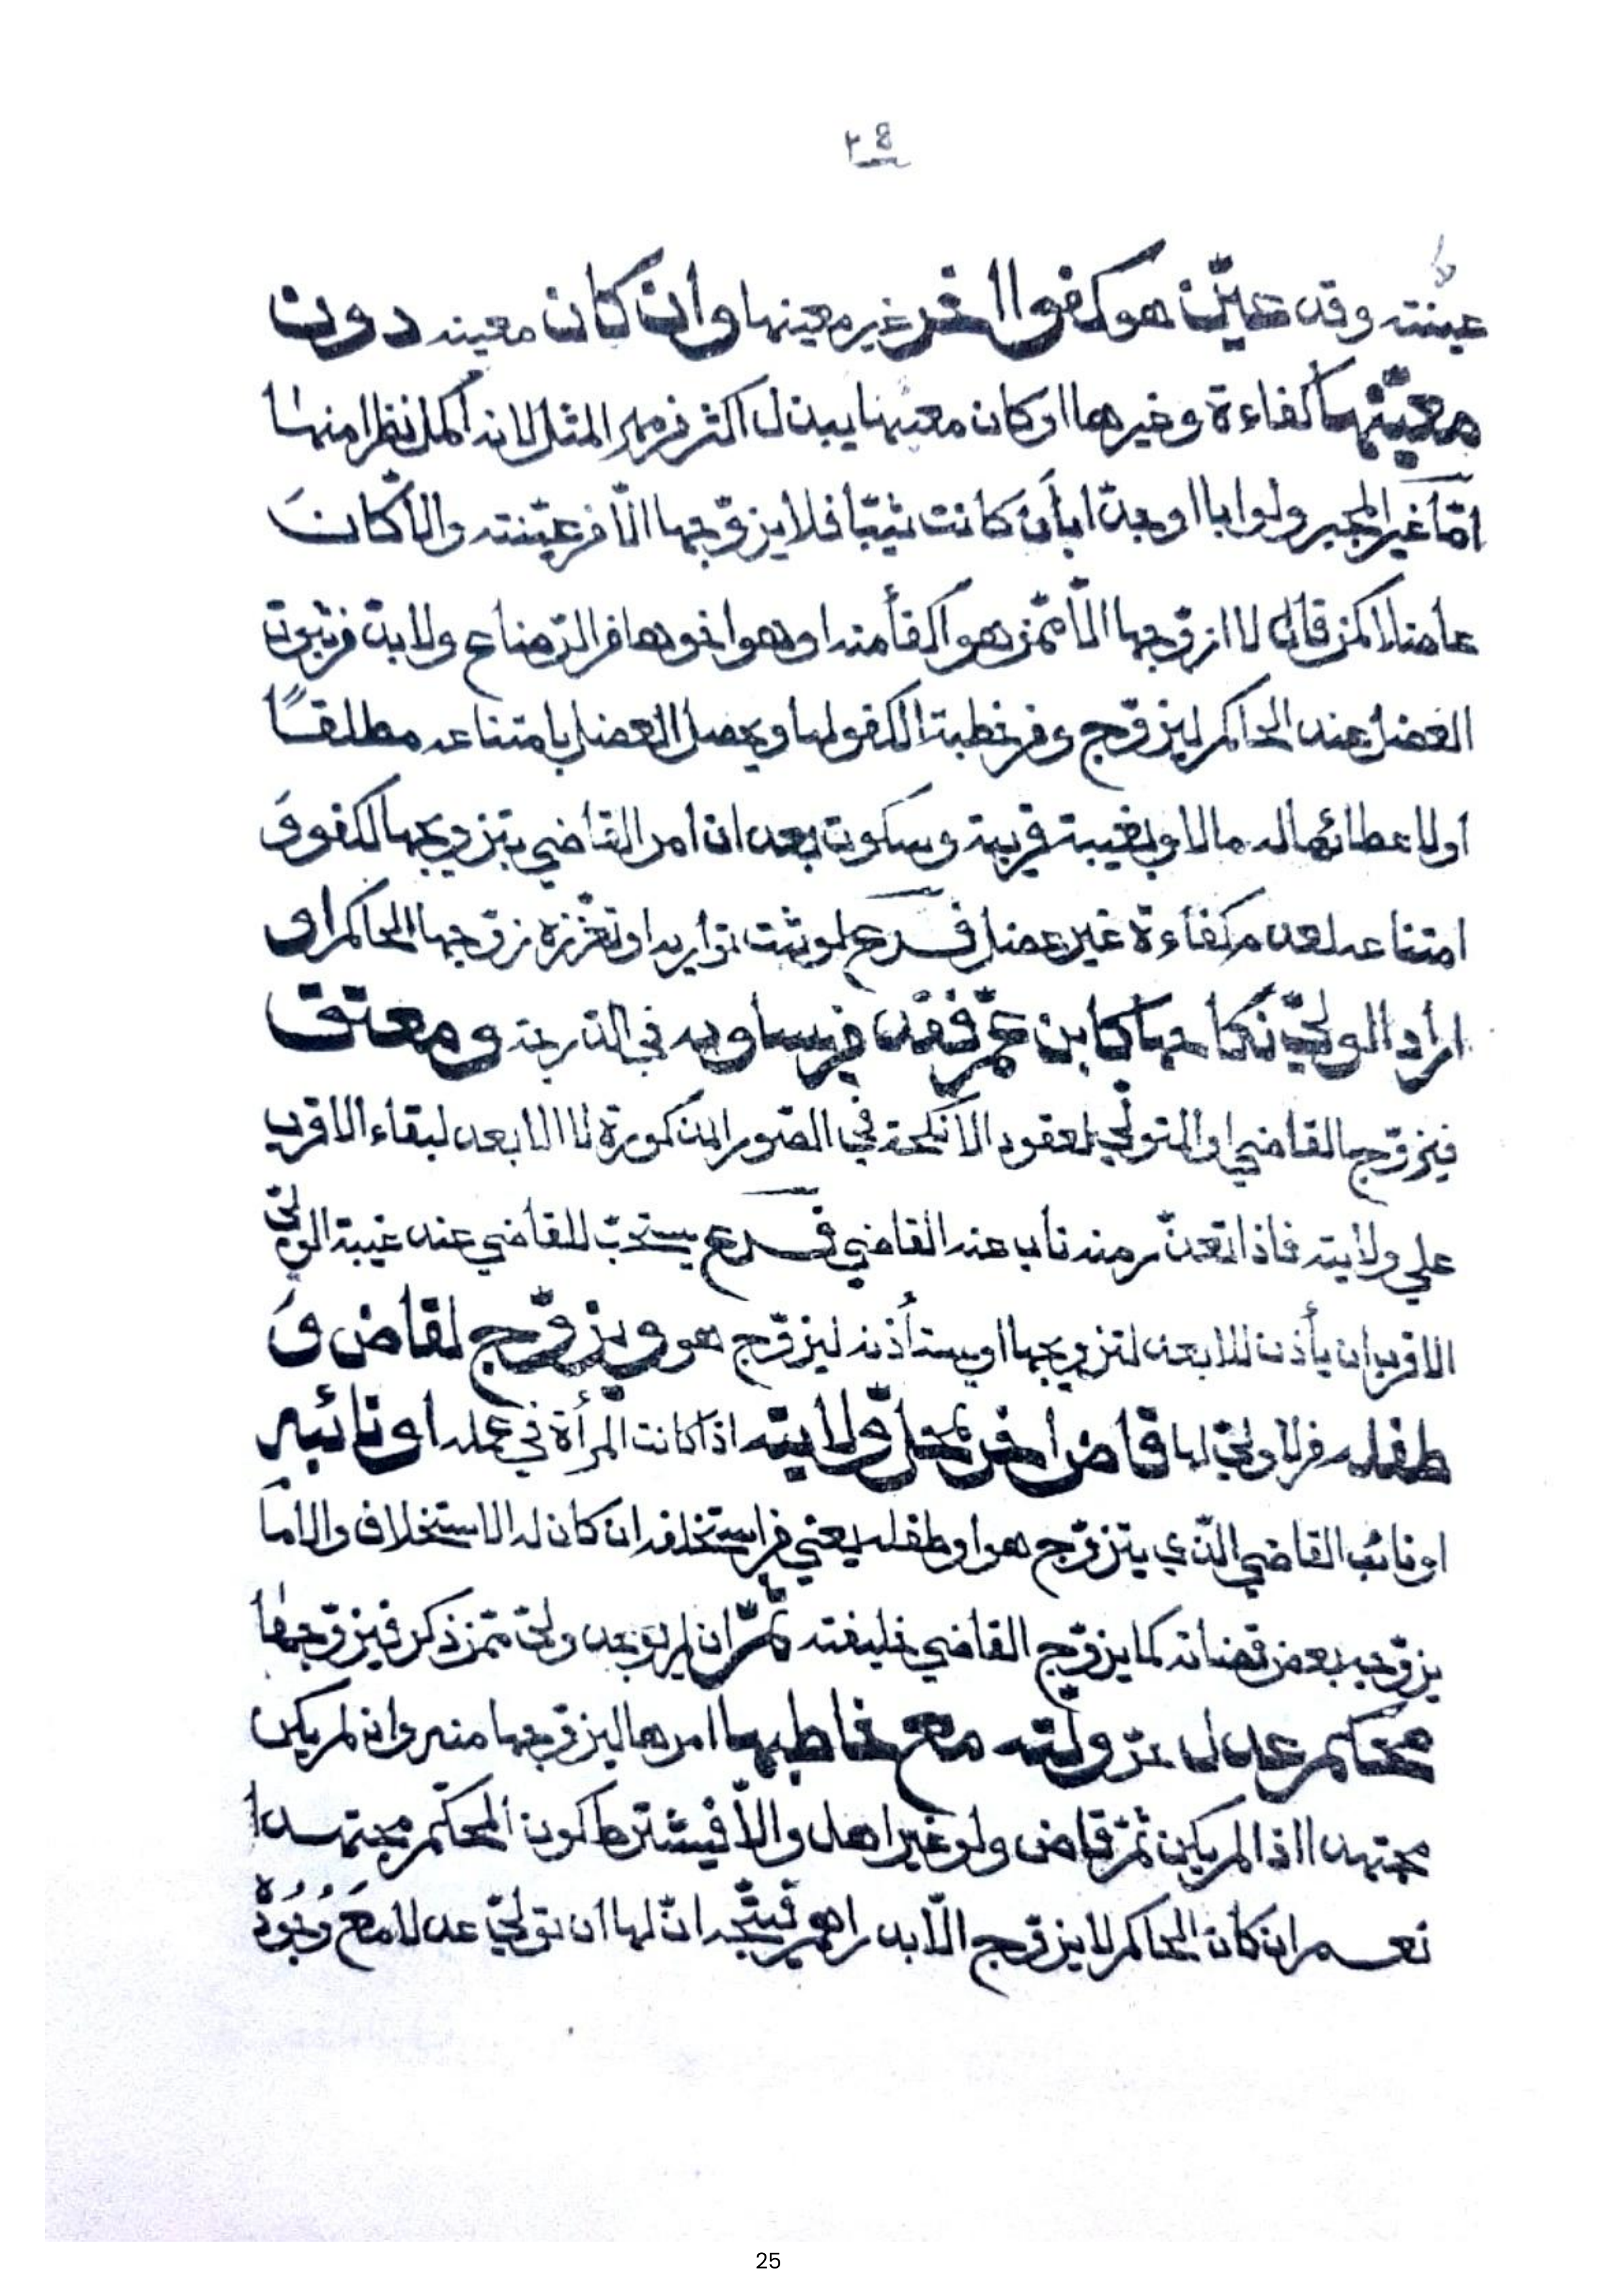 ٢٤
عينته وقد عيّن هو كفوا اخر غير معينها وان كان معينه دون
معيّنها كفاءة وغيرها او كان معينها يبذل اكثر من مهر المثل لانه اكمل نظرا منها
امّا غير المجبر ولو ابا او جدّا بأن كانت ثيّبا فلا يزوّجها الّا من عيّنته والّا كان
عاضلا كمن قال لا ازوّجها الّا ممّن هو اكفأ منه او هو اخوها من الرّضاع ولا بدّ من ثبوت
العضل عند الحاكم ليزوّج ومن خطبة الكفو لها ويحصل العضل بامتناعه مطلقًا
او لا عطائها له مالا وبغيبة قريبة وسكوت بعد ان امر القاضي بتزويجها لكفو وَ
امتناعه لعدم كفاءة غير عضل فرع لو ثبت تواريه او تعززه زوّجها الحاكم او
اراد الوليّ نكاحها كابن عمّ فقد من يساويه في الدرجة ومعتق
فيزوّجها القاضي او المتولّي لعقود الانكحة في الصّور المذكورة لا الابعد لبقاء الاقرب
علي ولايته فاذا تعذّر منه ناب عنه القاضي فرع يستحبّ للقاضي عند غيبة الوليّ
الاقرب ان يأذن للابعد لتزويجها او يستأذنه ليزوّج هو ويزوّج لقاض وَ
طفله من لا وليّ لها قاض اخر بمحلّ ولايته اذا كانت المرأة في عمله او نائبه
او نائب القاضي الّذي يتزوّج هو او طفله يعني من استخلفه ان كان له الاستخلاف والاما
يزوّجه بعض قضاته كما يزوّج القاضي خليفته ثمّ ان لم يوجد وليّ ممّن ذكر فيزوّجها
محكم عدل ولّته مع خاطبها امرها ليزوّجها منه وان لم يكن
مجتهدا اذا لم يكن ثمّ قاض ولو غير اهل والّا فيشترط كون المحكّم مجتهدا
نعم ان كان الحاكم لا يزوّج الّا بدراهم فيتّجه انّ لها ان تولّي عدلا مَعَ وُجُودِهِ
25